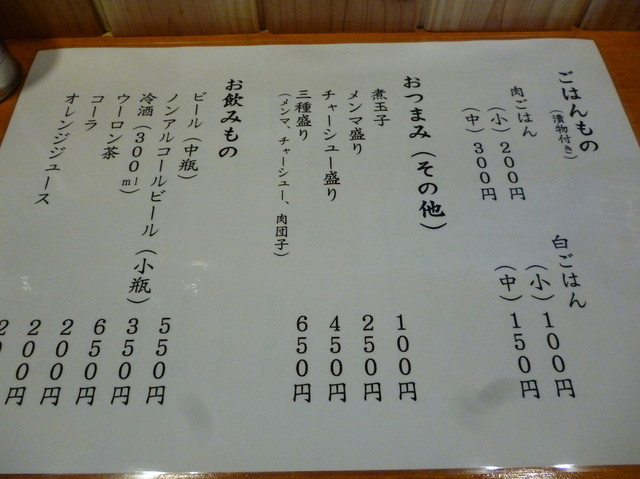 ごはんもの
(漬物付き)
肉ごはん
(小)２００円
(中)３００円
白ごはん
(小)１００円
(中)１５０円
おつまみ(その他)
煮玉子 １００円
メンマ盛り ２５０円
チャーシュー盛り ４５０円
三種盛り ６５０円
(メンマ、チャーシュー、肉団子)
お飲みもの
ビール(中瓶) ５５０円
ノンアルコールビール(小瓶) ３５０円
冷酒(３００ml) ６５０円
ウーロン茶 ２００円
コーラ ２００円
オレンジジュース ２００円